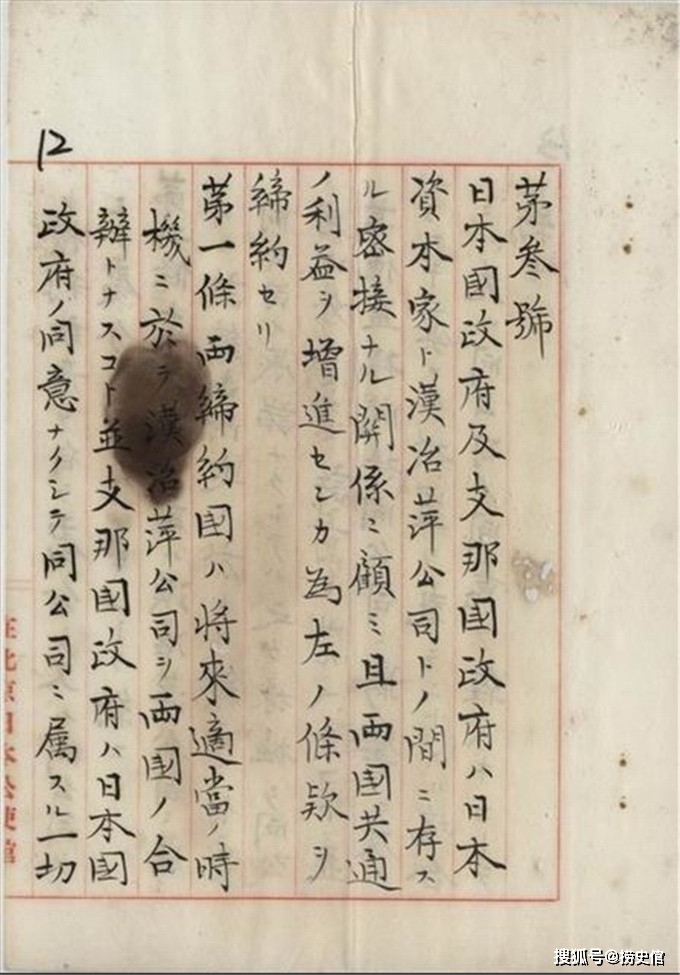 12
第参號
日本國政府及支那國政府ハ日本
資本家ト漢冶萍公司トノ間ニ存ス
ル密接ナル関係ニ顧ミ且両國共通
ノ利益ヲ増進センカ為左ノ條款ヲ
締約セリ
第一條両締約國ハ将來適當ノ時
機ニ於テ漢冶萍公司ヲ両國ノ合
辦トナスコト並支那國政府ハ日本國
政府ノ同意ナクシテ同公司ニ属スル一切
在北京日本公使館
搜狐号@捞史馆